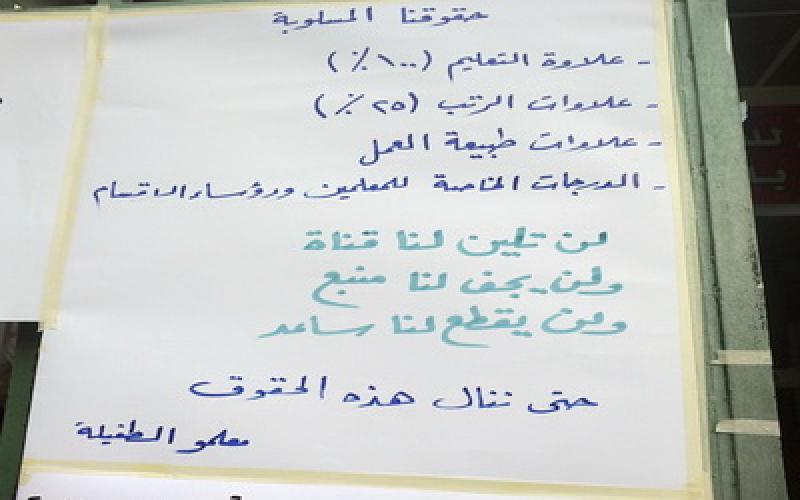 حقوقنا المسلوبة
- علاوة التعليم (١٠٠٪)
- علاوات الرتب (٢٥٪)
- علاوات طبيعة العمل
- الدرجات الخاصة للمعلمين ورؤساء الاقسام
لن تلين لنا قناة
ولن يجف لنا منبع
ولن يقطع لنا ساعد
حتى ننال هذه الحقوق
معلمو الطفيلة